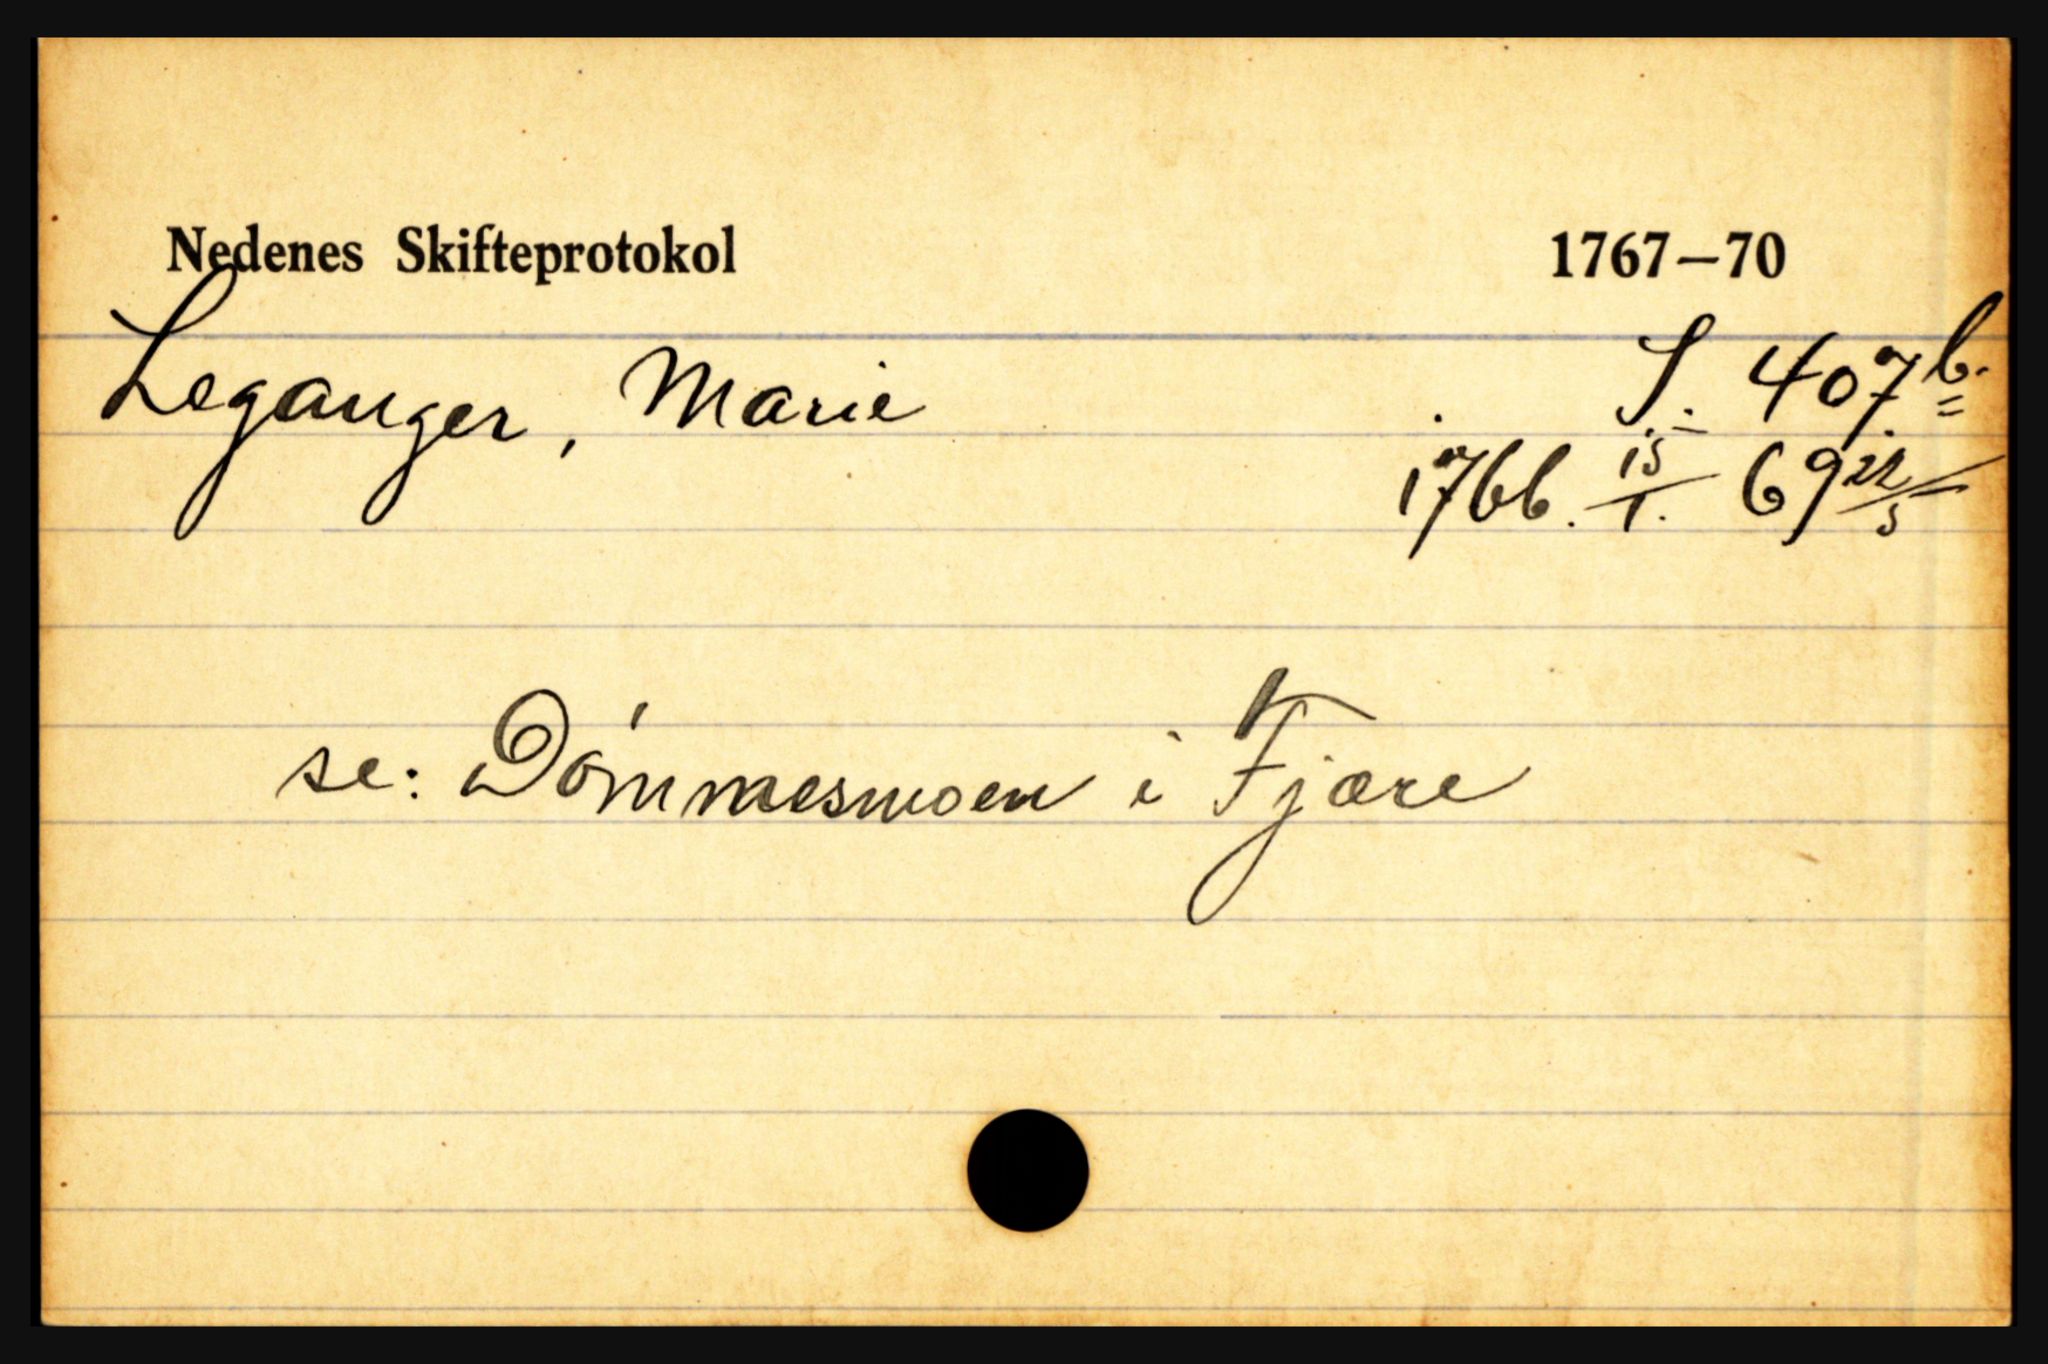 Nedenes Skifteprotokol 1767—70
Leganger, Marie S. 407b.
1766. 15/1. 69 22/5
se: Dómmesmoen i Fjære